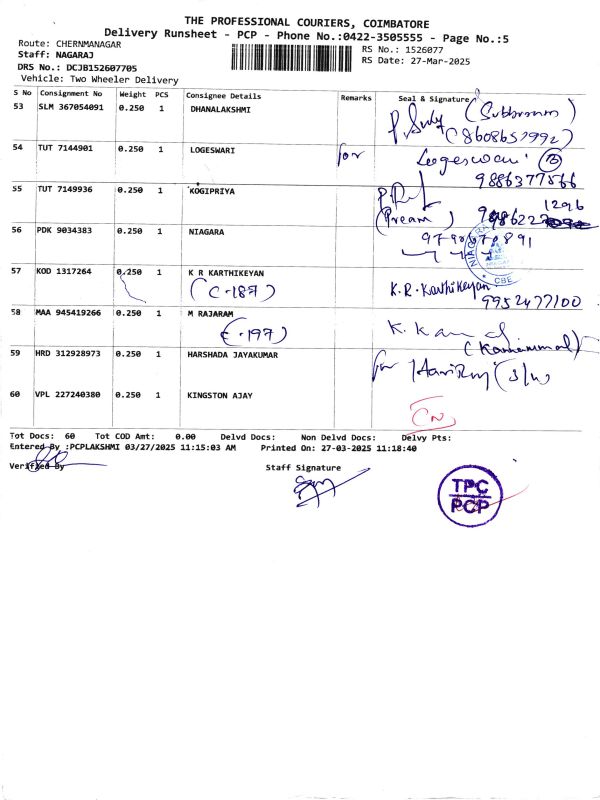 THE PROFESSIONAL COURIERS, COIMBATORE
Delivery Runsheet - PCP - Phone No.:0422-3505555 - Page No.:5
Route: CHERNMANAGAR
Staff: NAGARAJ
DRS No.: DCJB152607705
Vehicle: Two Wheeler Delivery
RS No.: 1526077
RS Date: 27-Mar-2025
S No Consignment No Weight PCS Consignee Details Remarks Seal & Signature
53 SLM 367054091 0.250 1 DHANALAKSHMI
(8608657992)
54 TUT 7144901 0.250 1 LOGESWARI for Logeswari
9886377566
55 TUT 7149936 0.250 1 KOGIPRIYA
(Pream)
1296
56 PDK 9034383 0.250 1 NIAGARA
NIAGARA
CBE
57 KOD 1317264 0.250 1 K R KARTHIKEYAN K.R.Karthikeyan
(C-187) 9952477100
58 MAA 945419266 0.250 1 M RAJARAM
(E-197)
59 HRD 312928973 0.250 1 HARSHADA JAYAKUMAR for
60 VPL 227240380 0.250 1 KINGSTON AJAY
Tot Docs: 60 Tot COD Amt: 0.00 Delvd Docs: Non Delvd Docs: Delvy Pts:
Entered By :PCPLAKSHMI 03/27/2025 11:15:03 AM Printed On: 27-03-2025 11:18:40
Verified By Staff Signature
TPC
PCP